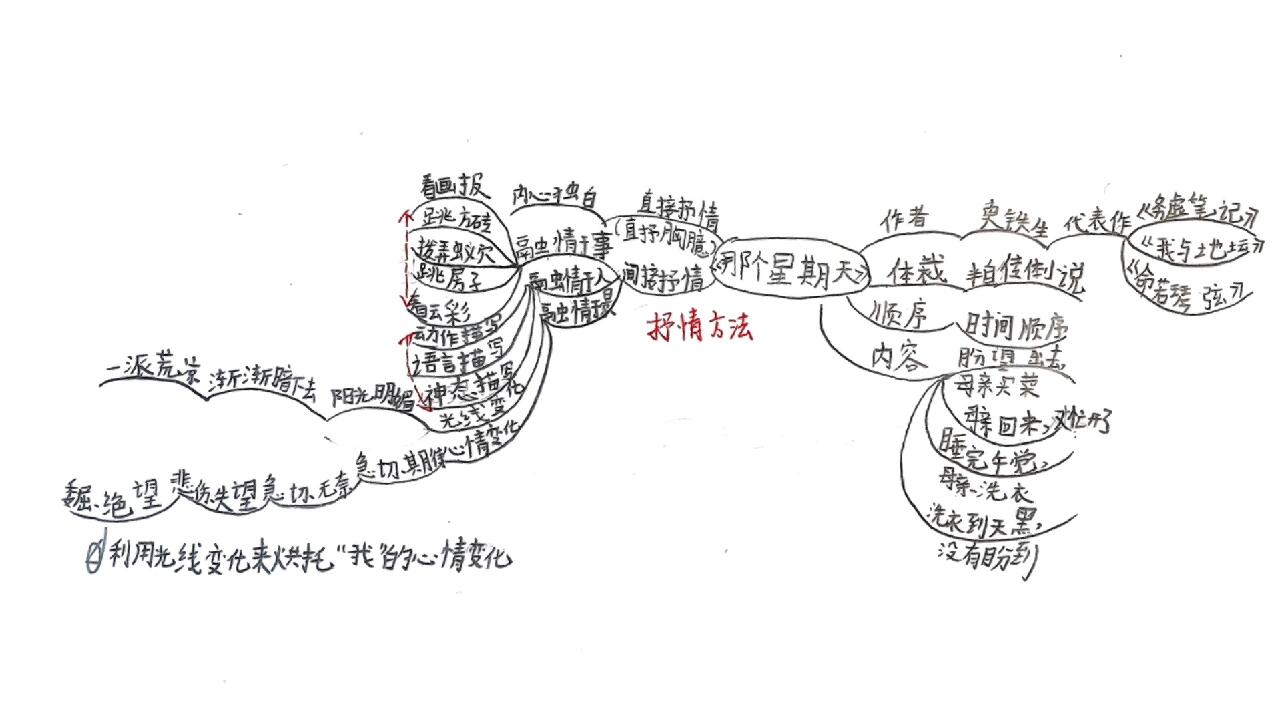 《那个星期天》
作者
史铁生
代表作
《务虚笔记》
《我与土地坛》
《命若琴弦》
体裁
半自传体小说
顺序
时间顺序
内容
盼望出去
母亲买菜
母亲回来,又忙开了
睡完午觉,
母亲洗衣
洗衣到天黑,
没有盼到
抒情方法
直接抒情
(直抒胸臆)
内心独白
间接抒情
融情于事
看画报
跳方砖
拨弄蚁穴
跳房子
看云彩
融情于人
动作描写
语言描写
神态描写
融情于景
光线变化
阳光明媚
渐渐暗下去
一派荒凉
心情变化
急切.期待
急切.无奈
悲伤.失望
委屈.绝望
利用光线变化来烘托“我”的心情变化